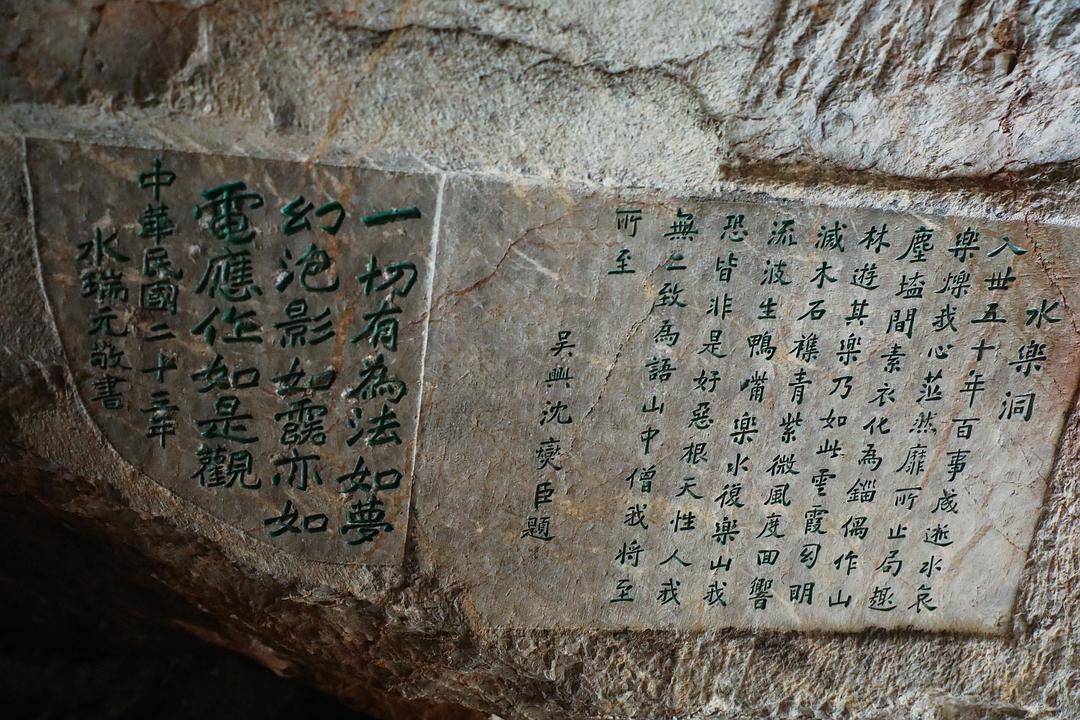 水樂洞
入世五十年百事咸逝水哀
樂爍我心茫然靡所止局趣
塵壒間素衣化為緇偶作山
林遊其樂乃如此雲霞幻明
滅木石襍青紫微風度回響
流波生鴨嘴樂水復樂山我
恐皆非是好惡根天性人我
無二致為語山中僧我將至
所至
吳興沈爕臣題
一切有為法如夢
幻泡影如露亦如
電應作如是觀
中華民國二十三年
水瑞元敬書